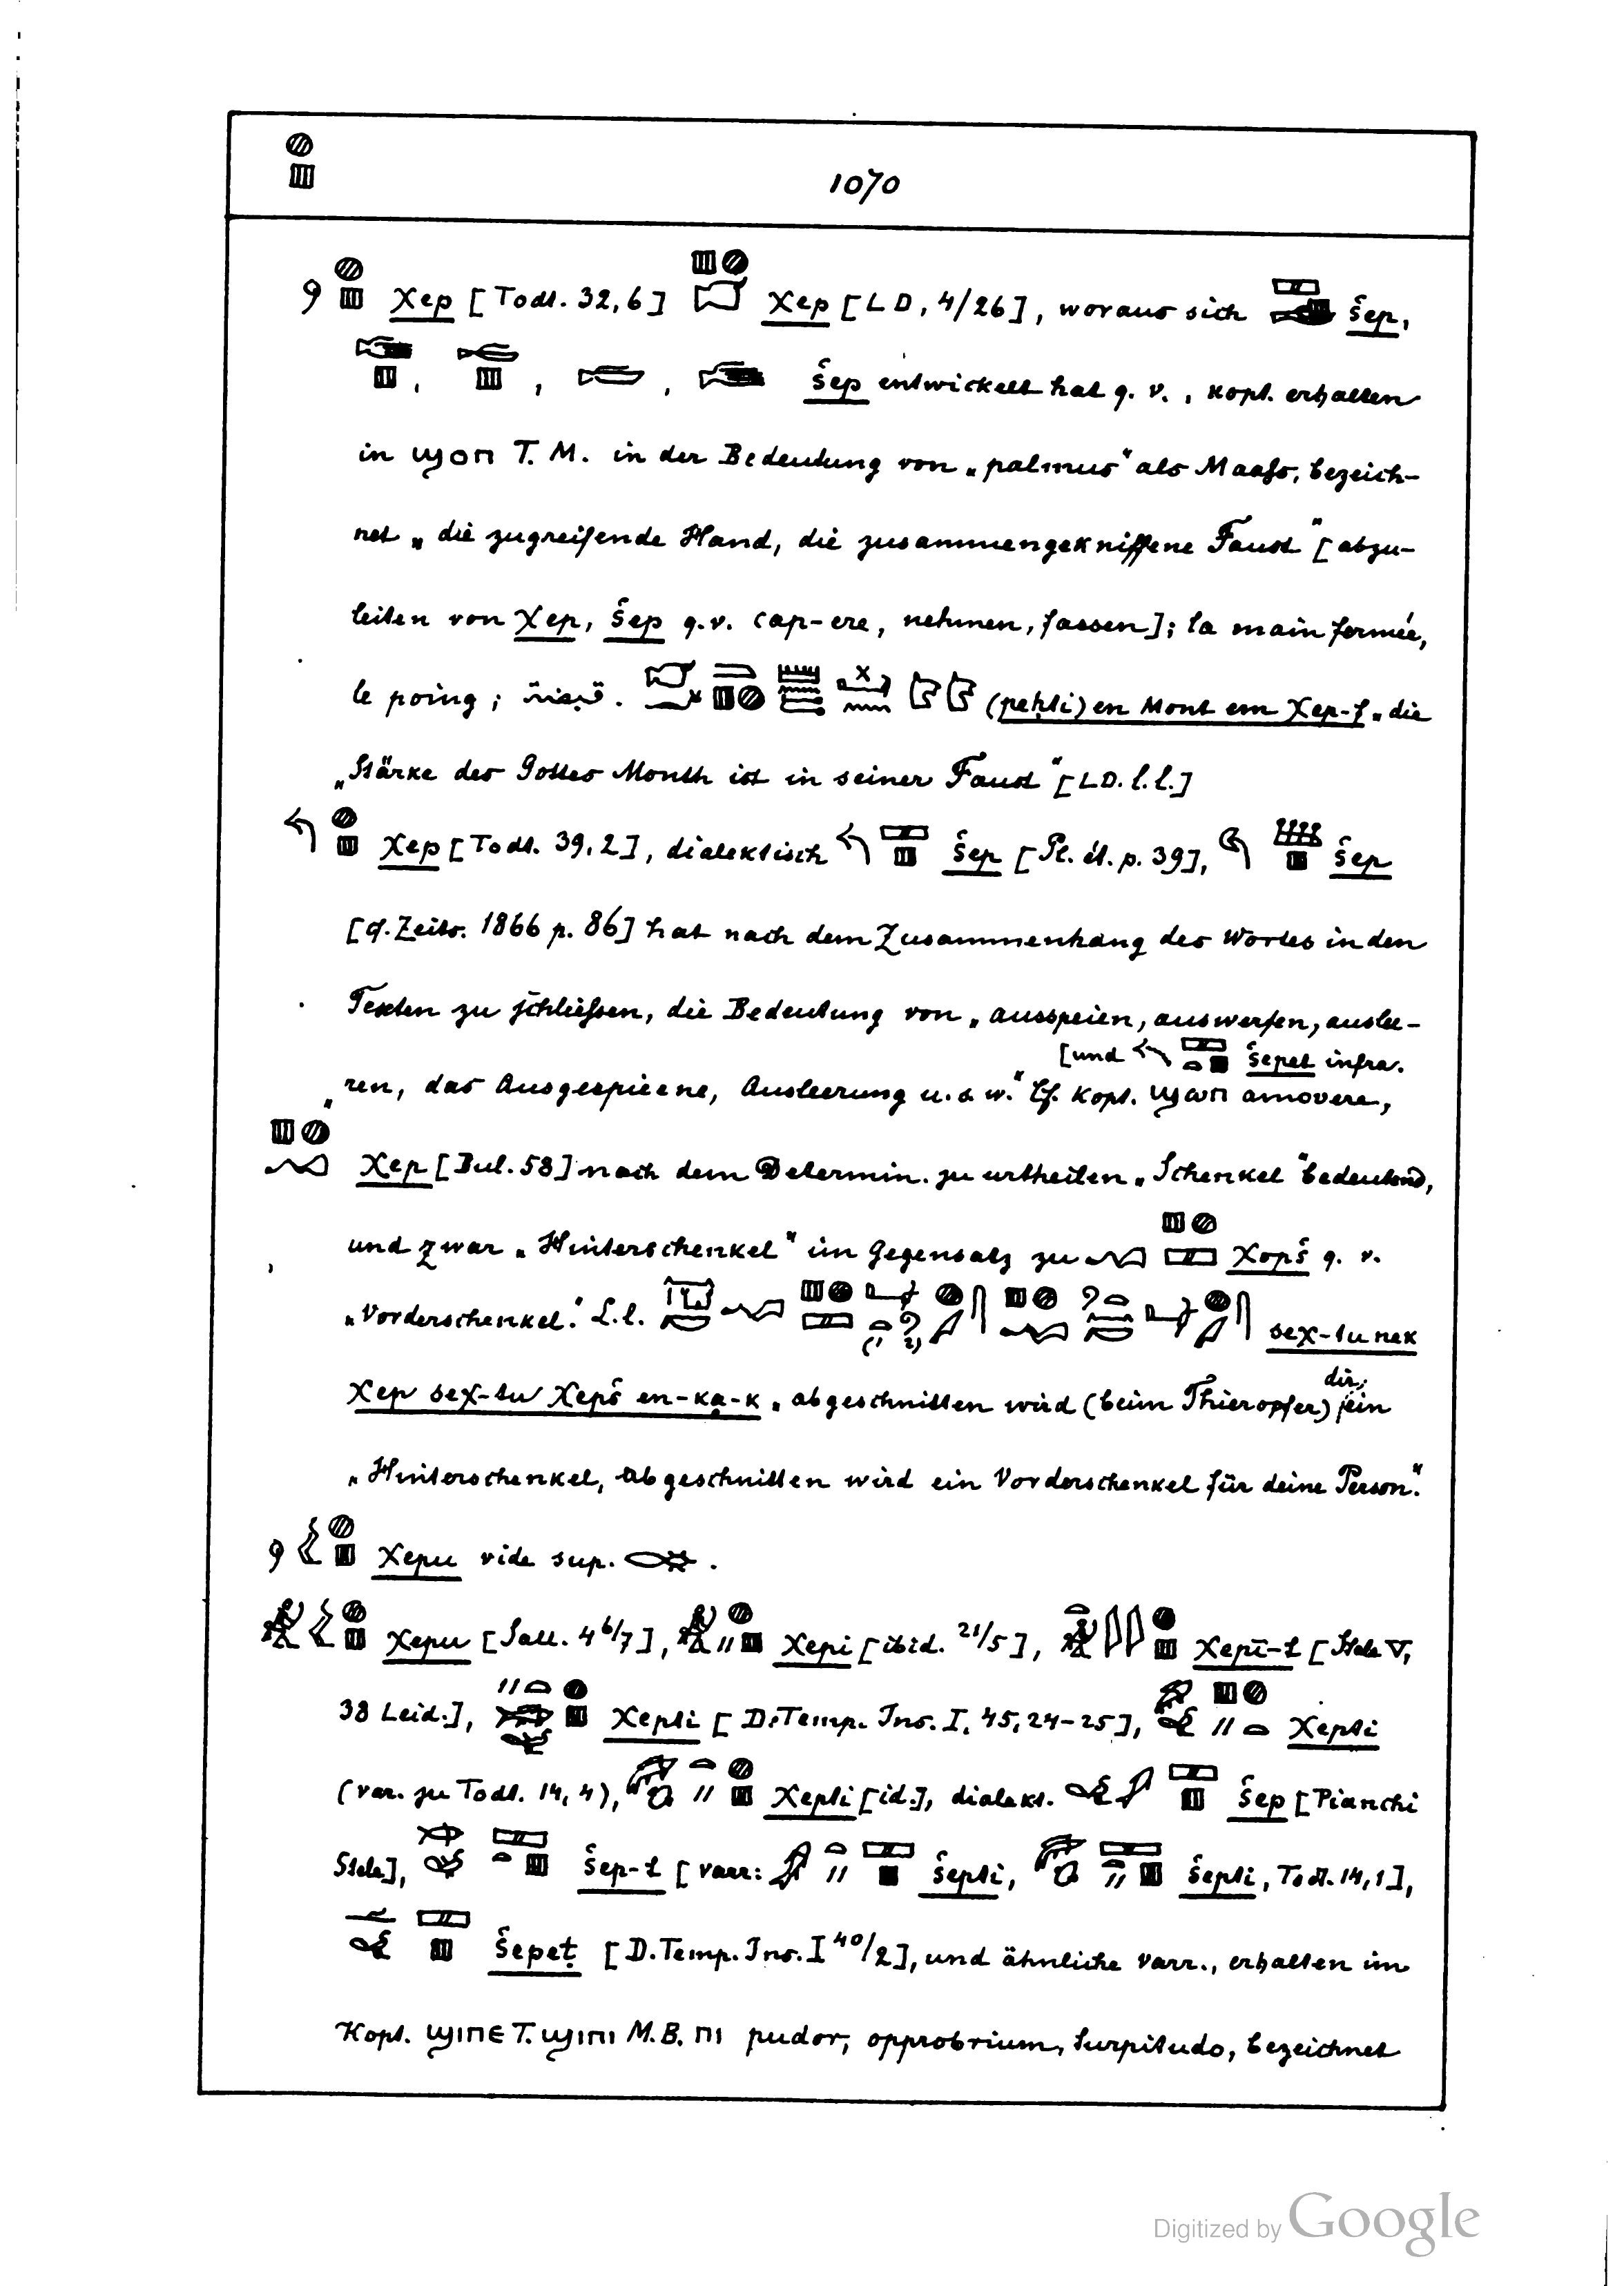 1070
χep [Todt. 32,6] χep [LD, 4/26], woraus sich šep,
šep entwickelt hat q. v., kopt. erhalten
in ϣⲟⲡ T. M. in der Bedeutung von „palmus“ als Maaſs, bezeich-
net „die zugreifende Hand, die zusammengekniffene Faust“ [abzu-
leiten von χep, šep q.v. cap-ere, nehmen, fassen]; la main fermée,
le poing; (peḥti) en Mont em χep-f „die
„Stärke des Gottes Month ist in seiner Faust“ [LD. l. l.]
χep [Todt. 39,2], dialektisch šep [Pl. ét. p. 39], šep
[cf. Zeits. 1866 p. 86] hat nach dem Zusammenhang des Wortes in den
Texten zu schlieſsen, die Bedeutung von „ausspeien, auswerfen, auslee-
[und šepet infra.
„ren, das Ausgespieene, Ausleerung u. s. w.“ Cf. kopt. ϣⲱⲡ amovere,
χep [Bul. 58] nach dem Determin. zu urtheilen „Schenkel“ bedeutend,
und zwar „Hinterschenkel“ im Gegensatz zu χopš q. v.
„Vorderschenkel.“ L.l. (1 2) seχ-tu nek
χep seχ-tu χepš en-ka-k „abgeschnitten wird (beim Thieropfer) dir; ein
„Hinterschenkel, abgeschnitten wird ein Vorderschenkel für deine Person.“
χepu vide sup.
χepu [Sall. 4 6/7], χepi [ibid. 21/5], χepī-t [Stele V,
38 Leid.], χepti [D. Temp. Ins. I, 45, 24-25], χepti
(var. zu Todt. 14, 4), χepti [id.], dialekt. šep [Pianchi
Stele], šep-t [varr: šepti, šepti, Todt. 14,1],
šepeṭ [D. Temp. Ins. I 40/2], und ähnliche varr., erhalten im
Kopt. ϣⲓⲡⲉ T. ϣⲓⲡⲓ M. B. ⲡⲓ pudor, opprobrium, turpitudo, bezeichnet
Digitized by Google